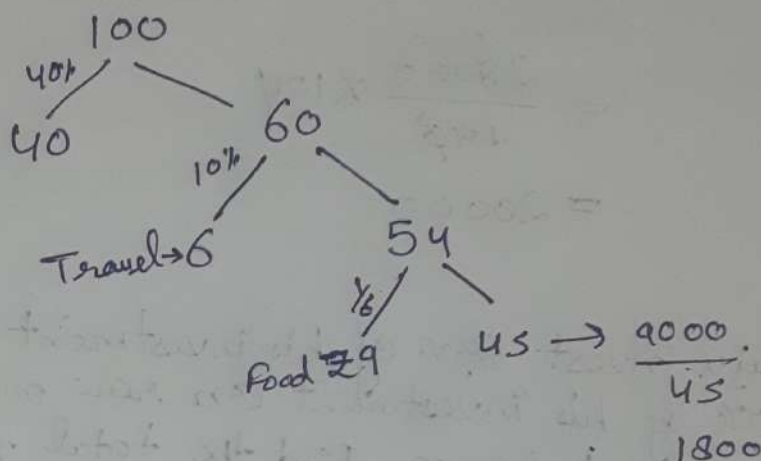 100
40%
40
60
10%
Travel→6
54
1/6
Food 9
45 → 9000.
45
1800